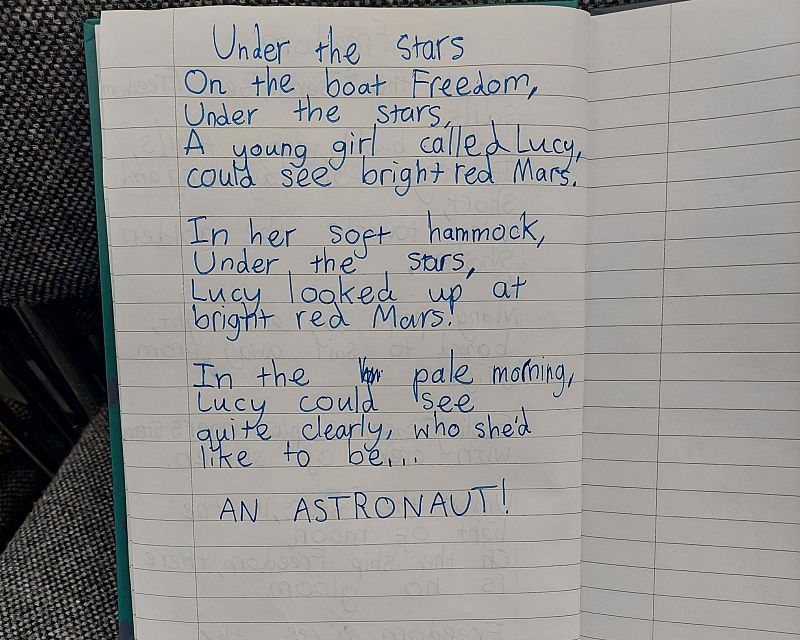 Under the stars
On the boat Freedom,
Under the stars,
A young girl called Lucy,
could see bright red Mars.
In her soft hammock,
Under the stars,
Lucy looked up at
bright red Mars!
In the pale morning,
Lucy could see
quite clearly, who she'd
like to be...
AN ASTRONAUT!